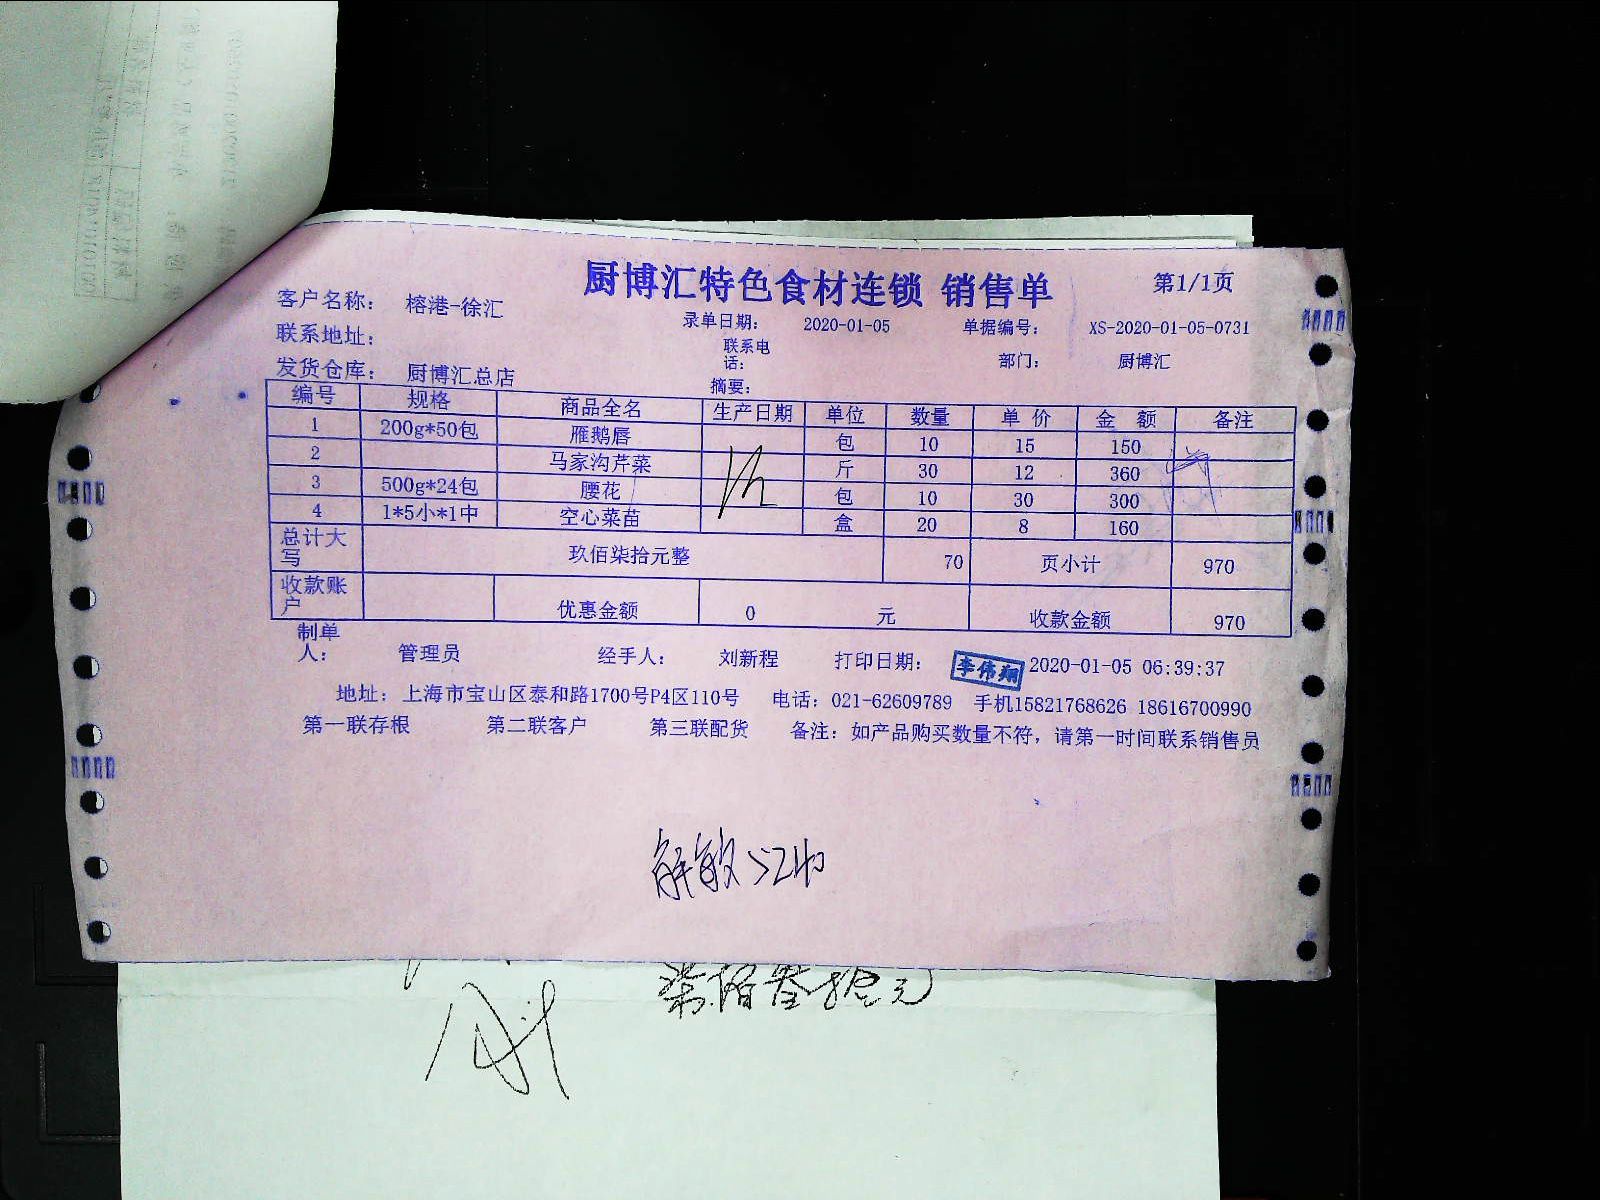 厨博汇特色食材连锁 销售单 第1/1页
客户名称： 榕港-徐汇 录单日期： 2020-01-05 单据编号： XS-2020-01-05-0731
联系地址： 联系电话： 部门： 厨博汇
发货仓库： 厨博汇总店 摘要：
编号 规格 商品全名 生产日期 单位 数量 单 价 金 额 备注
1 200g*50包 雁鹅唇 包 10 15 150
2 马家沟芹菜 斤 30 12 360
3 500g*24包 腰花 包 10 30 300
4 1*5小*1中 空心菜苗 盒 20 8 160
总计大写 玖佰柒拾元整 70 页小计 970
收款账户 优惠金额 0 元 收款金额 970
制单人： 管理员 经手人： 刘新程 打印日期： 李伟翔 2020-01-05 06:39:37
地址：上海市宝山区泰和路1700号P4区110号 电话：021-62609789 手机15821768626 18616700990
第一联存根 第二联客户 第三联配货 备注：如产品购买数量不符，请第一时间联系销售员